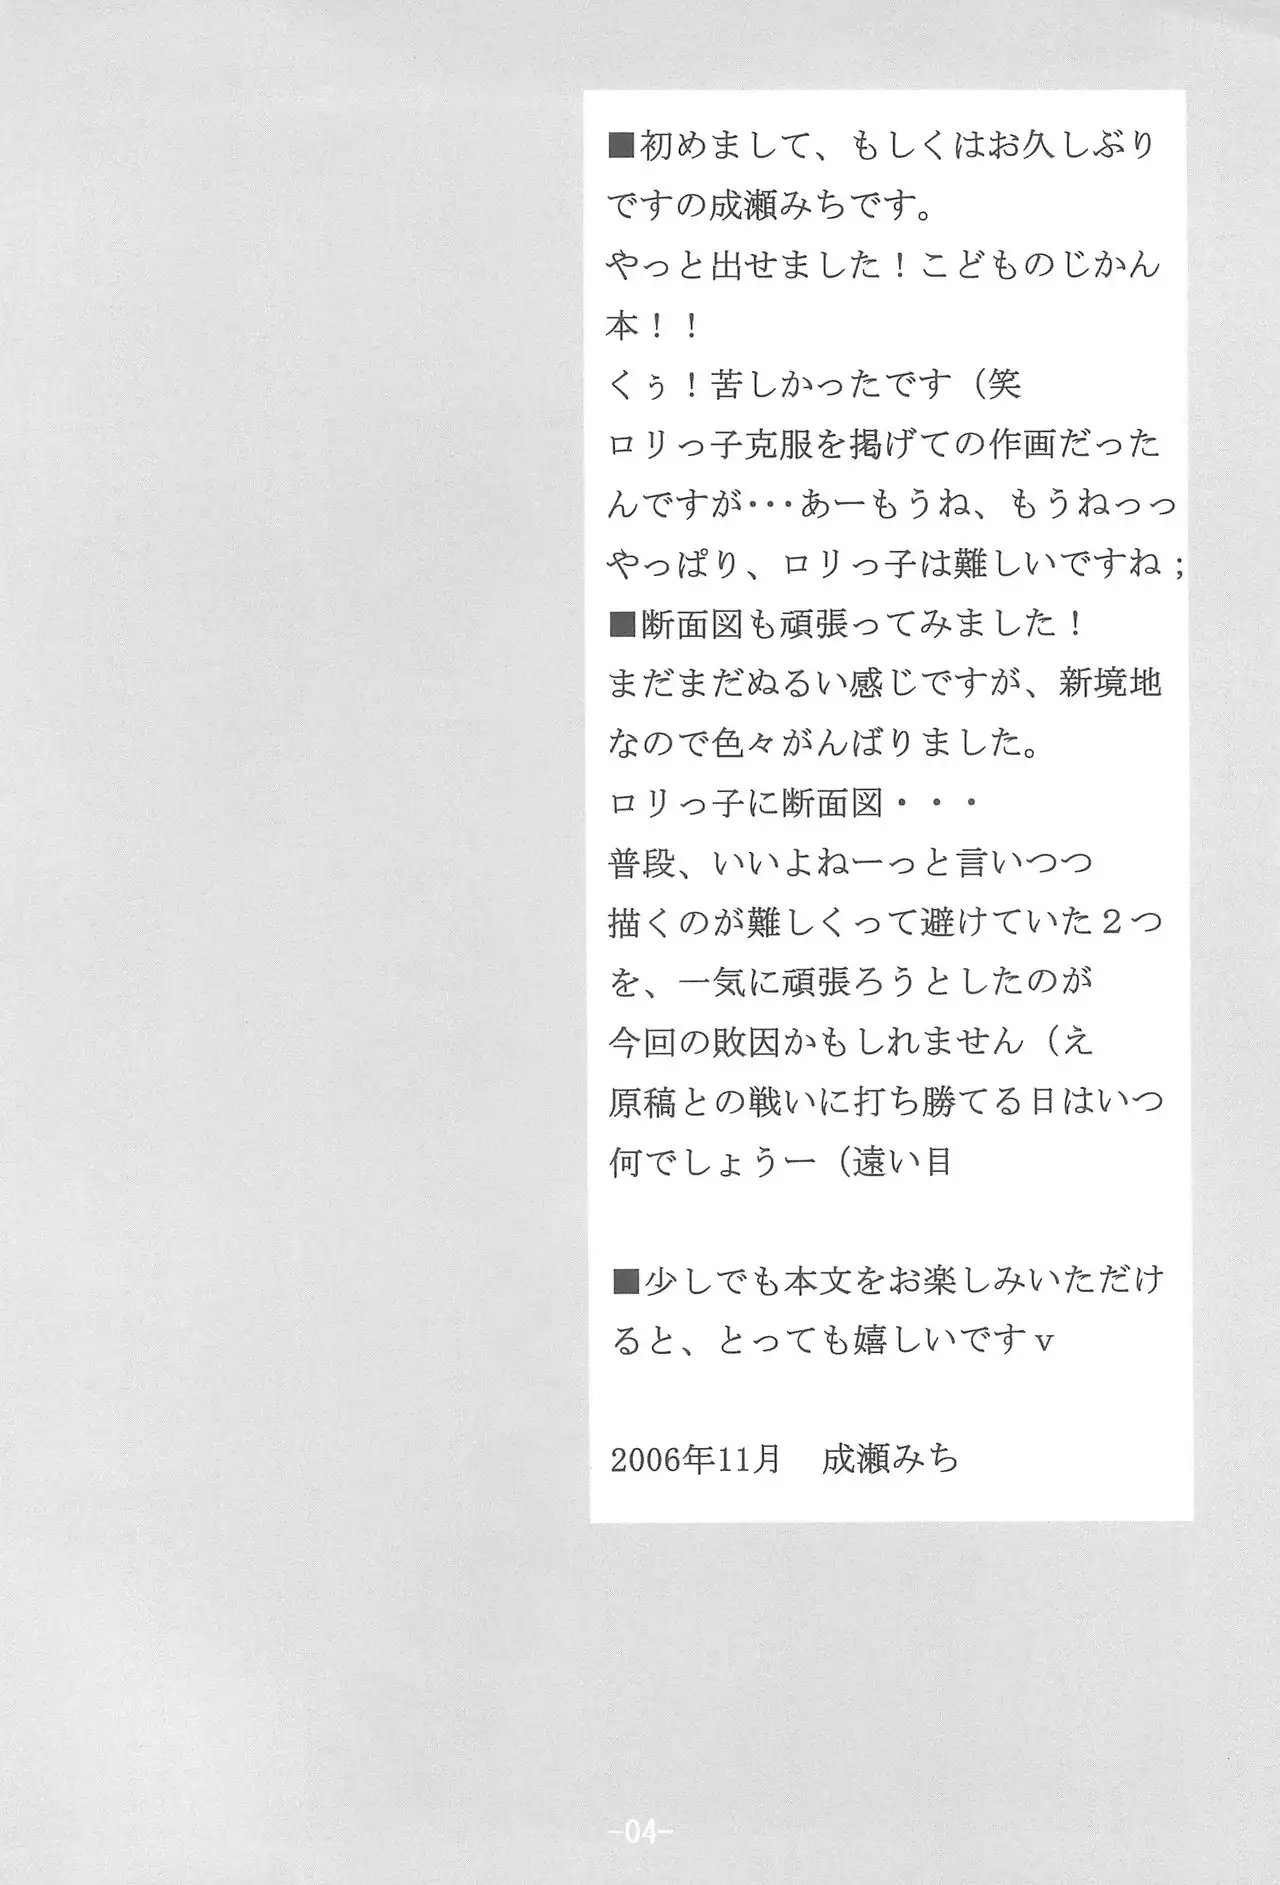 ■初めまして、もしくはお久しぶり
ですの成瀬みちです。
やっと出せました！こどものじかん
本！！
くぅ！苦しかったです（笑
ロリっ子克服を掲げての作画だった
んですが･･･あーもうね、もうねっっ
やっぱり、ロリっ子は難しいですね；
■断面図も頑張ってみました！
まだまだぬるい感じですが、新境地
なので色々がんばりました。
ロリっ子に断面図・・・
普段、いいよねーっと言いつつ
描くのが難しくって避けていた２つ
を、一気に頑張ろうとしたのが
今回の敗因かもしれません（え
原稿との戦いに打ち勝てる日はいつ
何でしょうー（遠い目
■少しでも本文をお楽しみいただけ
ると、とっても嬉しいですｖ
2006年11月　成瀬みち
-04-